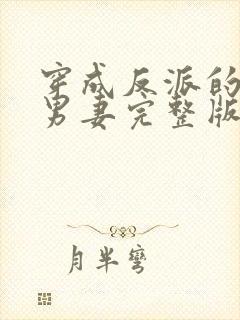 穿成反派的
男妻完整版
月半弯